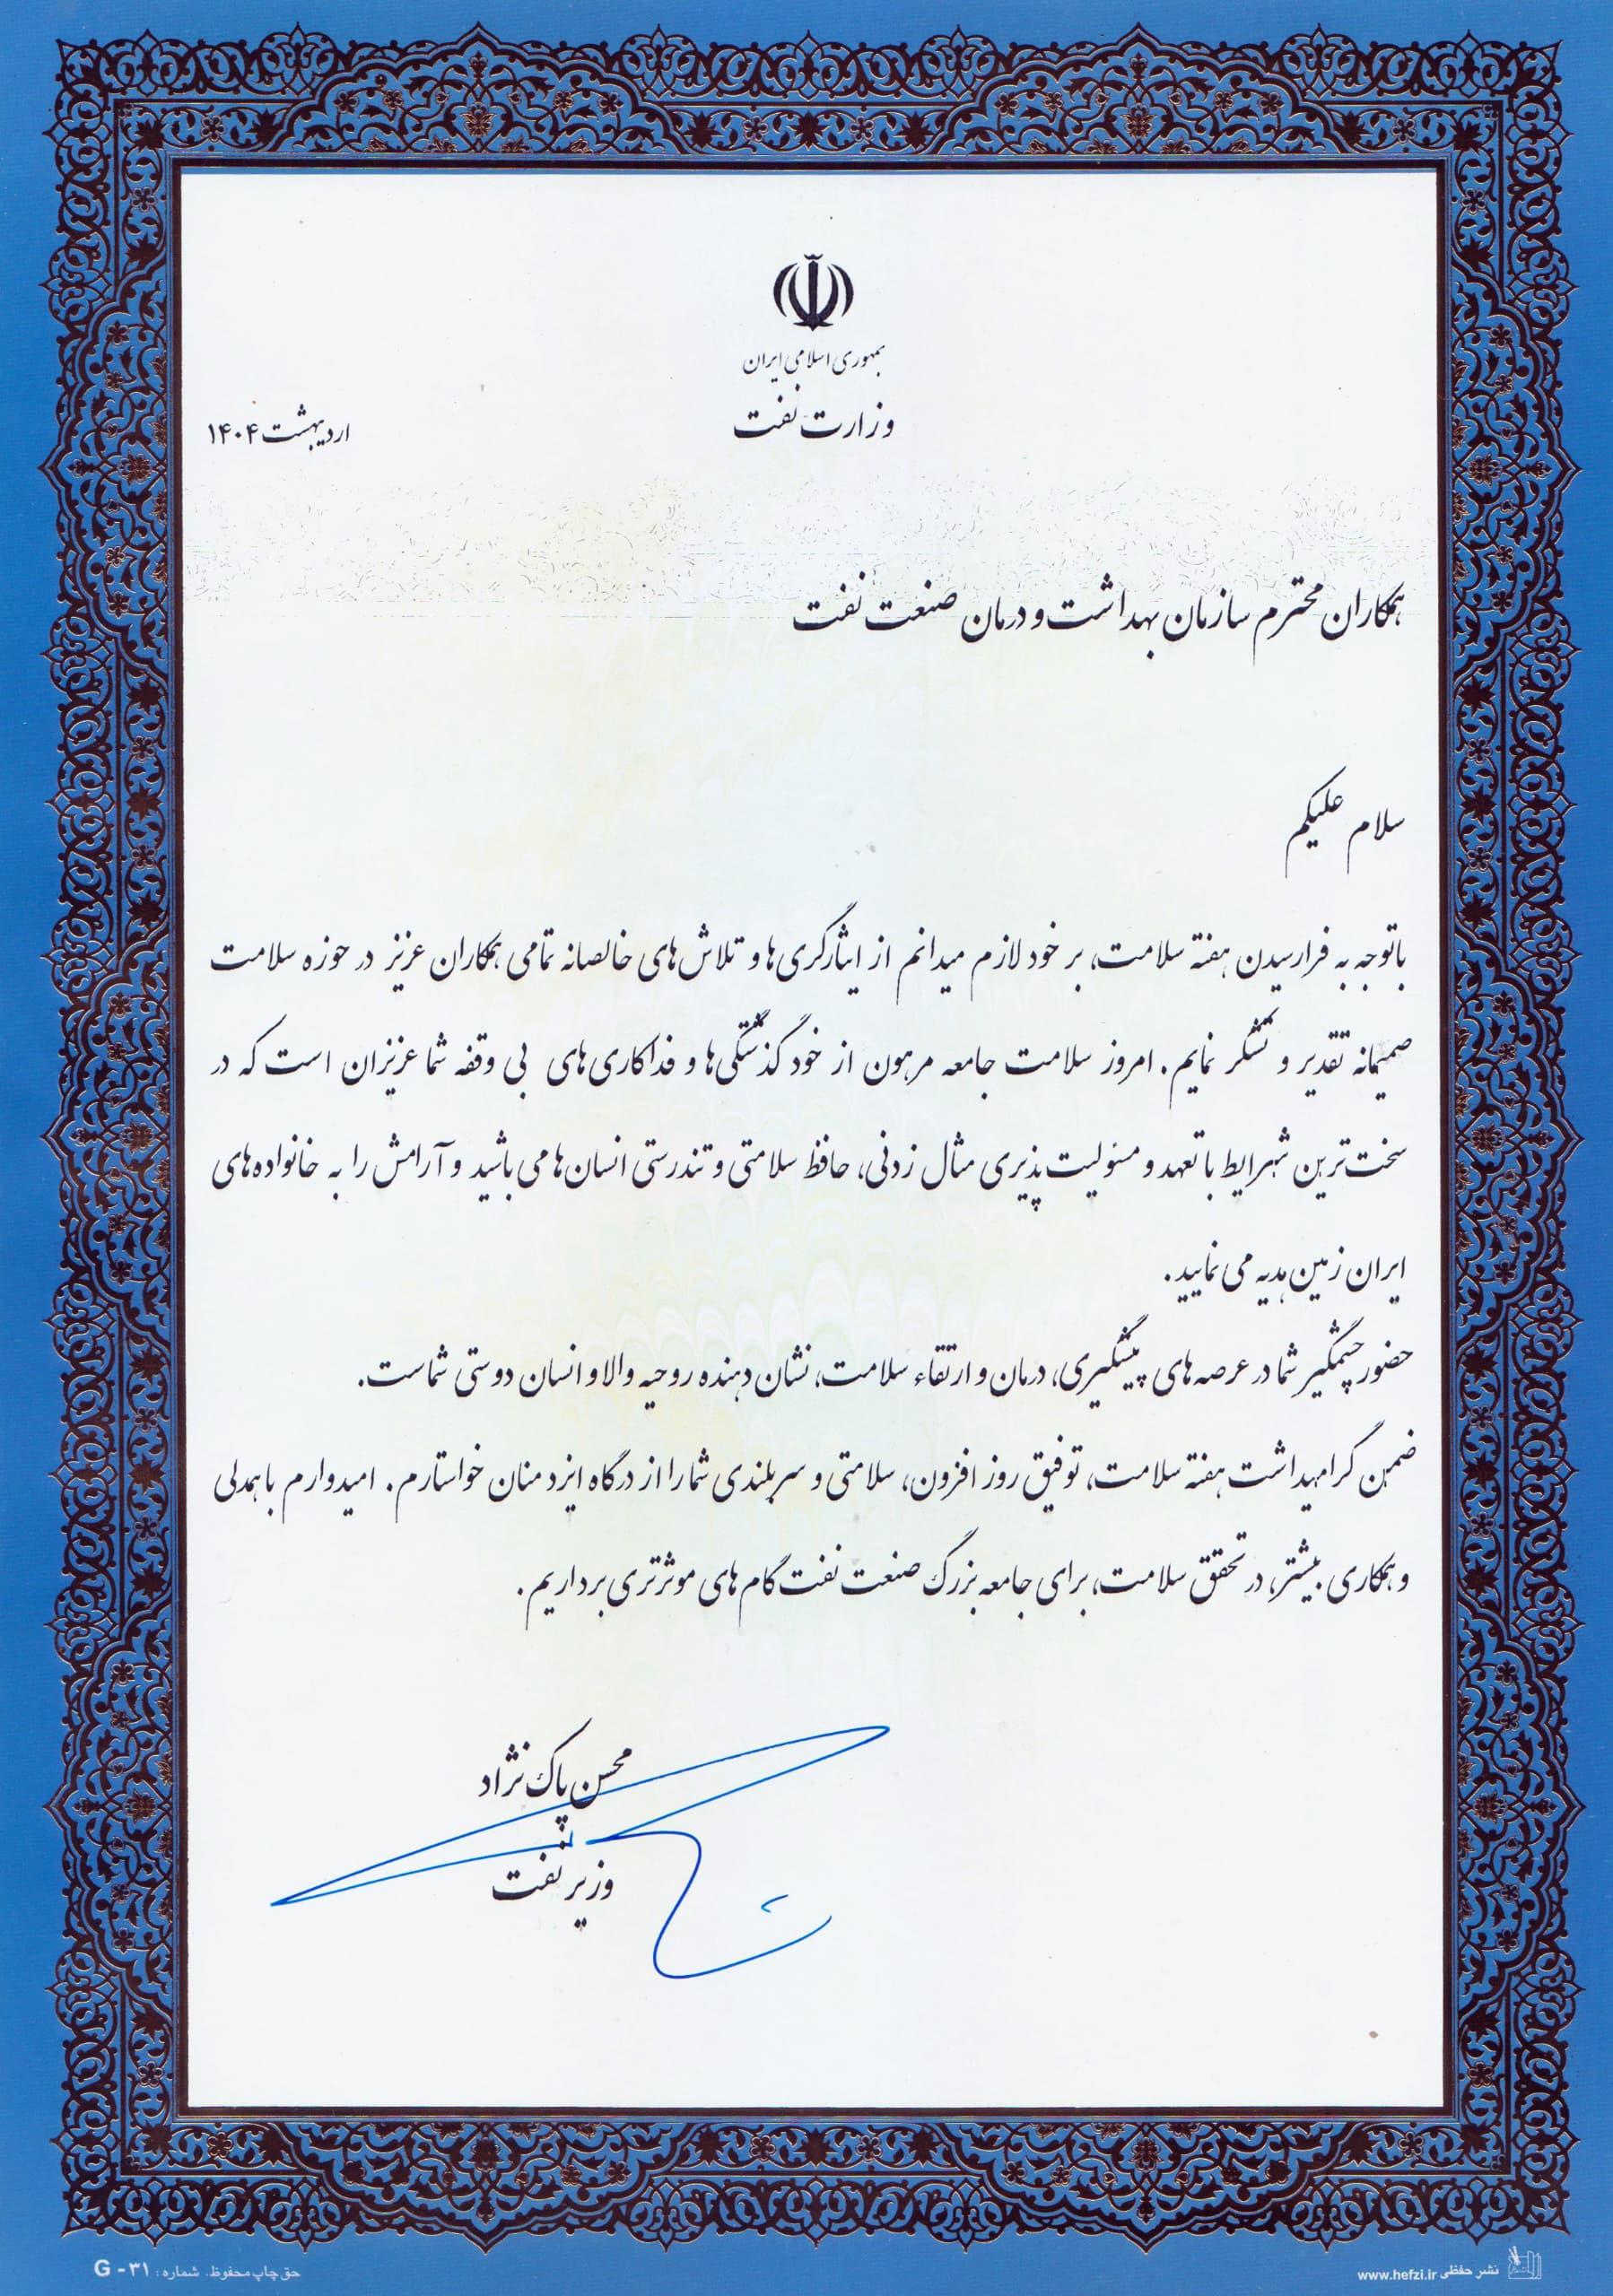 جمهوری اسلامی ایران
وزارت نفت
اردیبهشت ۱۴۰۴
همکاران محترم سازمان بهداشت و درمان صنعت نفت
سلام علیکم
باتوجه به فرارسیدن هفته سلامت، بر خود لازم میدانم از ایثارگری‌ها و تلاش‌های خالصانه تمامی همکاران عزیز در حوزه سلامت
صمیمانه تقدیر و تشکر نمایم. امروز سلامت جامعه مرهون از خود گذشتگی‌ها و فداکاری‌های بی وقفه شما عزیزان است که در
سخت‌ترین شرایط با تعهد و مسئولیت‌پذیری مثال زدنی، حافظ سلامتی و تندرستی انسان‌ها می‌باشید و آرامش را به خانواده‌های
ایران زمین هدیه می نمایید.
حضور چشمگیر شما در عرصه های پیشگیری، درمان و ارتقاء سلامت، نشان دهنده روحیه والا و انسان دوستی شماست.
ضمن گرامیداشت هفته سلامت، توفیق روز افزون، سلامتی و سربلندی شما را از درگاه ایزد منان خواستارم. امیدوارم با همدلی
و همکاری بیشتر، در تحقق سلامت، برای جامعه بزرگ صنعت نفت گام های موثرتری برداریم.
محسن پاک نژاد
وزیر نفت
حق چاپ محفوظ. شماره: G - ۳۱
نشر حفظی www.hefzi.ir